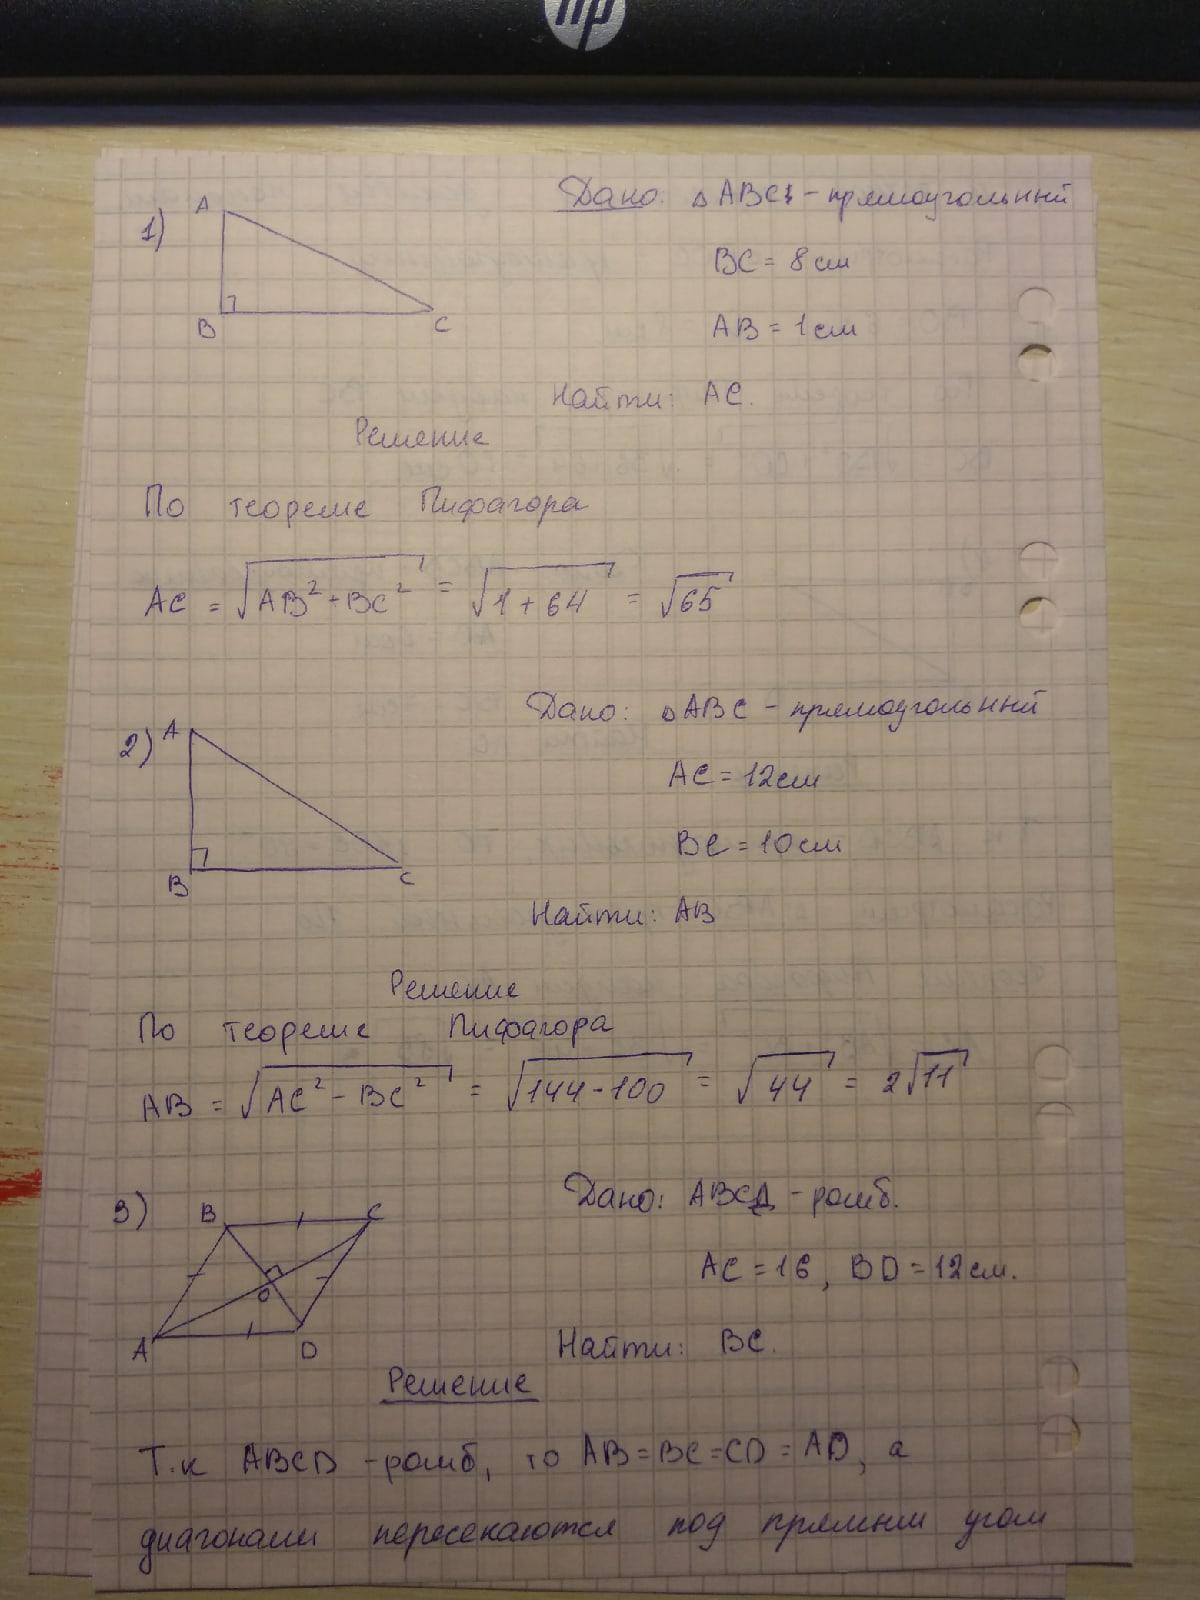 hp
1)
A
B
C
Дано: △ABC - прямоугольный
BC = 8 см
AB = 1 см
Найти: AC.
Решение
По теореме Пифагора
AC = √AB² + BC² = √1 + 64 = √65
2)
A
B
C
Дано: △ABC - прямоугольный
AC = 12 см
BC = 10 см
Найти: AB
Решение
По теореме Пифагора
AB = √AC² - BC² = √144 - 100 = √44 = 2√11
3)
B
C
O
A
D
Дано: ABCД - ромб.
AC = 16, BD = 12 см.
Найти: BC.
Решение
Т.к ABCD - ромб, то AB = BC = CD = AD, а
диагонали пересекаются под прямым углом